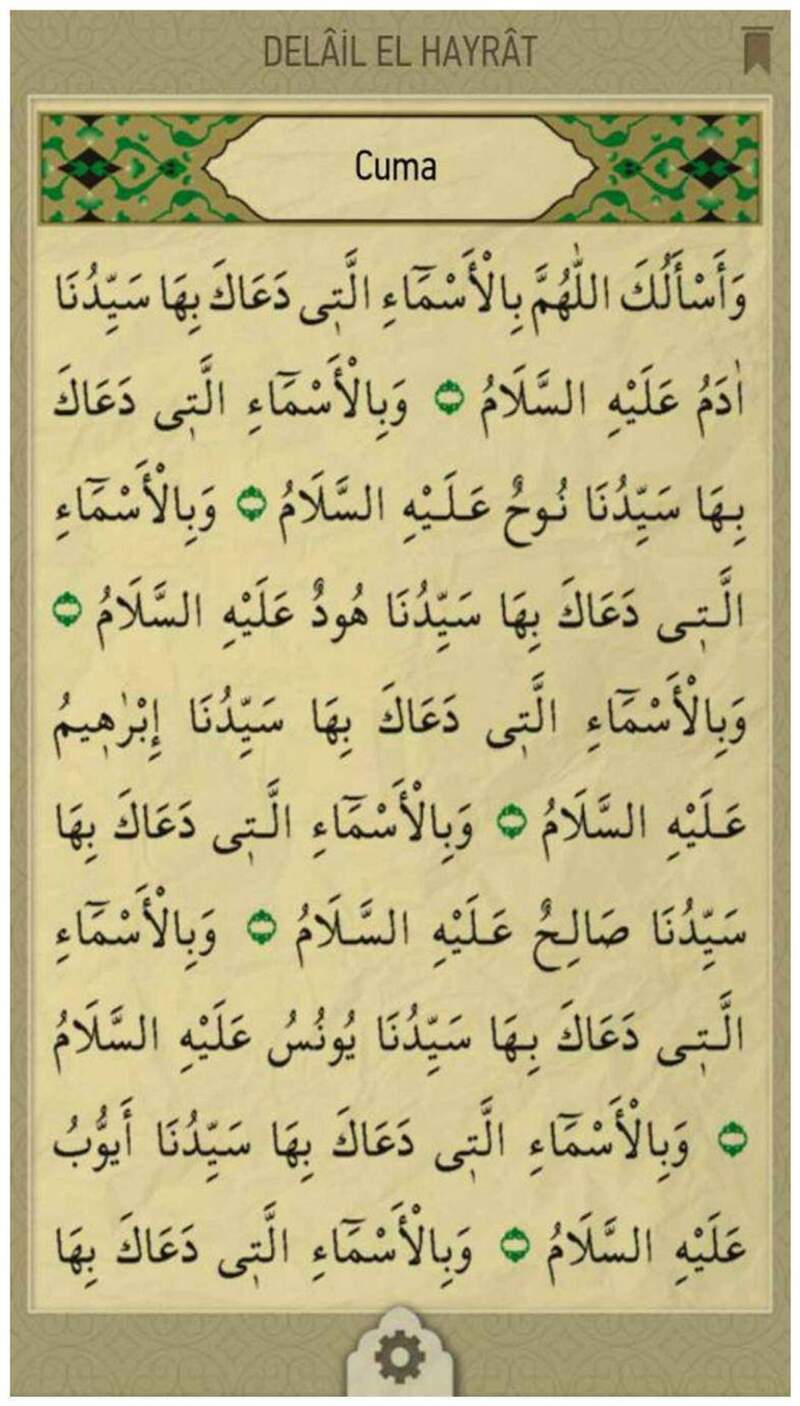 DELÂİL EL HAYRÂT
Cuma
وَأَسْأَلُكَ اللّٰهُمَّ بِالْأَسْمَٓاءِ الَّتٖى دَعَاكَ بِهَا سَيِّدُنَا
اٰدَمُ عَلَيْهِ السَّلَامُ ۝ وَبِالْأَسْمَٓاءِ الَّتٖى دَعَاكَ
بِهَا سَيِّدُنَا نُوحٌ عَلَيْهِ السَّلَامُ ۝ وَبِالْأَسْمَٓاءِ
الَّتٖى دَعَاكَ بِهَا سَيِّدُنَا هُودٌ عَلَيْهِ السَّلَامُ ۝
وَبِالْأَسْمَٓاءِ الَّتٖى دَعَاكَ بِهَا سَيِّدُنَا إِبْرٰهٖيمُ
عَلَيْهِ السَّلَامُ ۝ وَبِالْأَسْمَٓاءِ الَّتٖى دَعَاكَ بِهَا
سَيِّدُنَا صَالِحٌ عَلَيْهِ السَّلَامُ ۝ وَبِالْأَسْمَٓاءِ
الَّتٖى دَعَاكَ بِهَا سَيِّدُنَا يُونُسُ عَلَيْهِ السَّلَامُ
۝ وَبِالْأَسْمَٓاءِ الَّتٖى دَعَاكَ بِهَا سَيِّدُنَا أَيُّوبُ
عَلَيْهِ السَّلَامُ ۝ وَبِالْأَسْمَٓاءِ الَّتٖى دَعَاكَ بِهَا